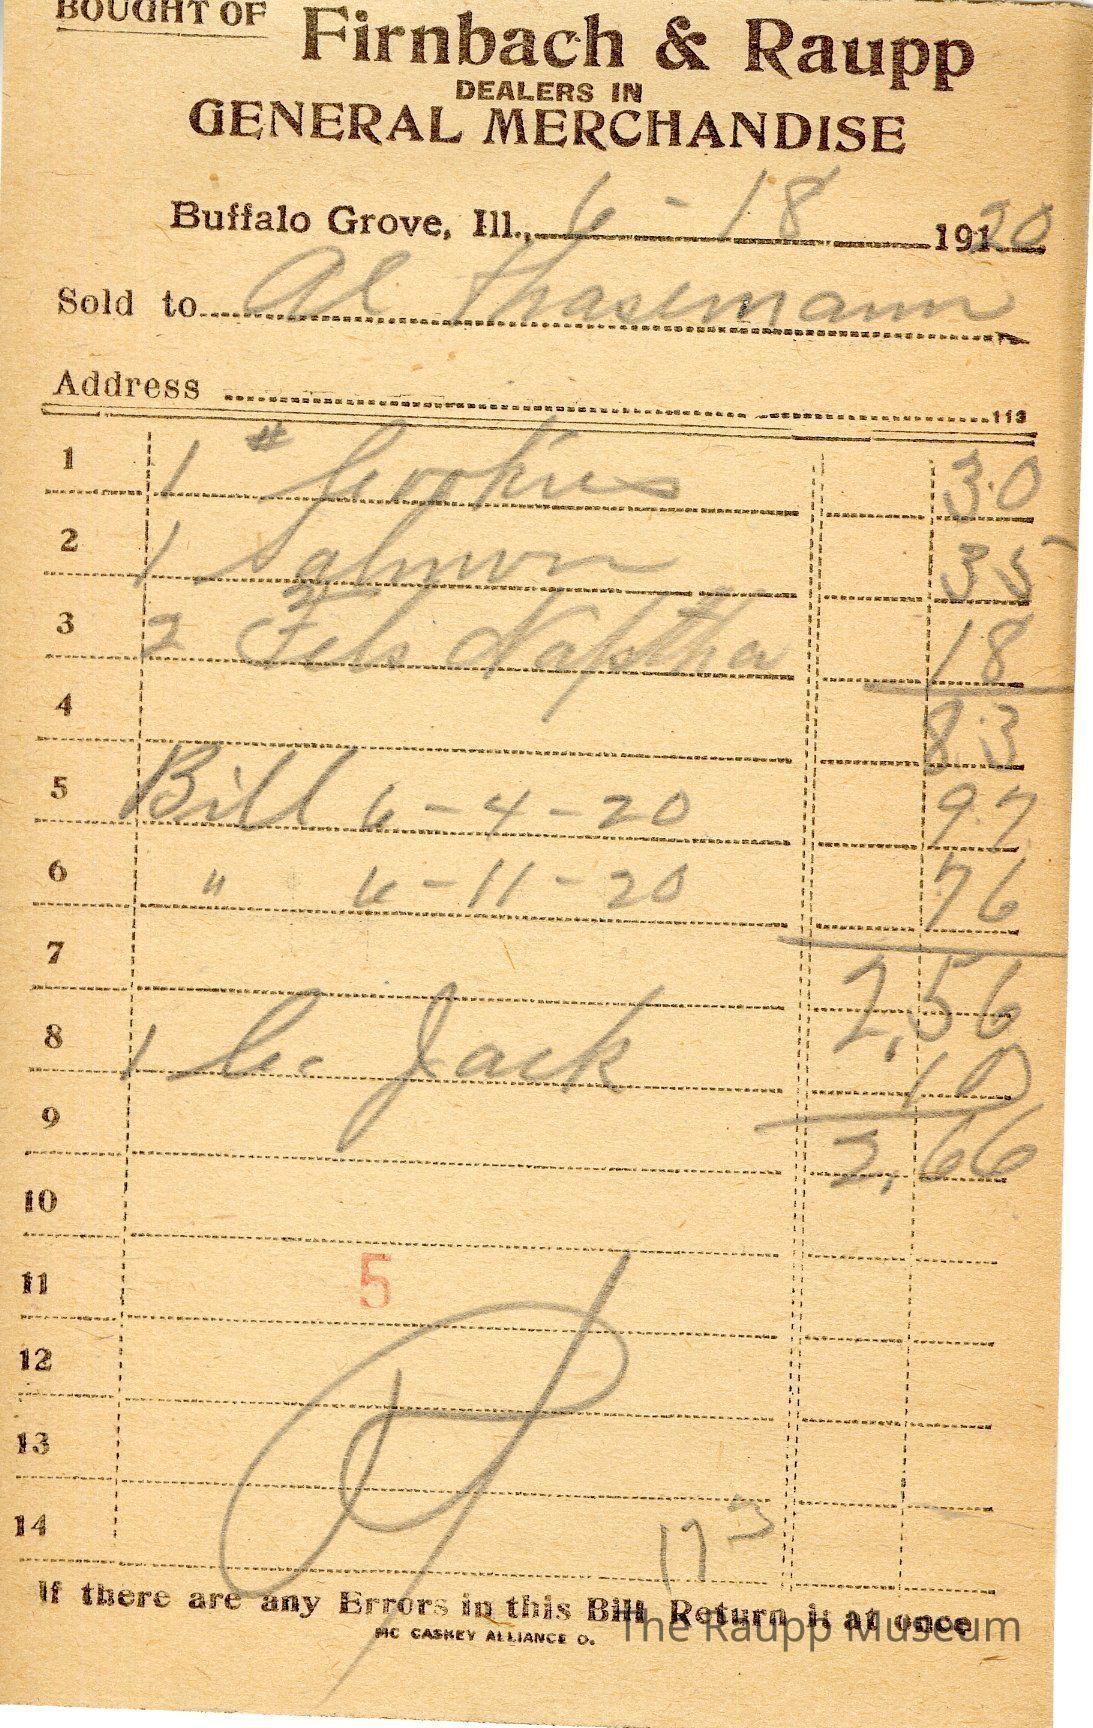 BOUGHT OF Firnbach & Raupp
DEALERS IN
GENERAL MERCHANDISE
Buffalo Grove, Ill., 6-18 191 20
Sold to Al Thasemann
Address 113
1 1 # Cookies 30
2 1 Salmon 35
3 2 Fels Naptha 18
4 83
5 Bill 6-4-20 97
6 " 6-11-20 76
7 2,56
8 1 C. Jack 10
9 2,66
10
11 5
12
13
14 17
If there are any Errors in this Bill Return it at once
MC CASKEY ALLIANCE O.
The Raupp Museum